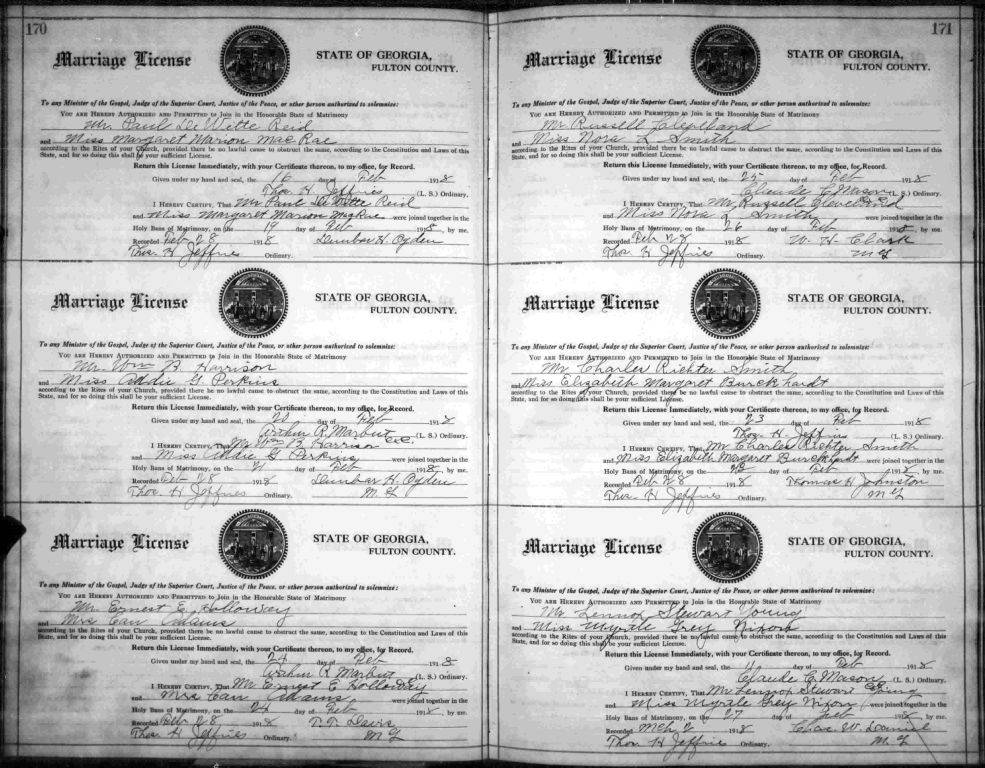 170
Marriage License
STATE OF GEORGIA,
FULTON COUNTY.
To any Minister of the Gospel, Judge of the Superior Court, Justice of the Peace, or other person authorized to solemnize:
YOU ARE HEREBY AUTHORIZED AND PERMITTED to Join in the Honorable State of Matrimony
Mr. Paul De Witte Reid
and Miss Margaret Marion MacRae
according to the Rites of your Church, provided there be no lawful cause to obstruct the same, according to the Constitution and Laws of this
State, and for so doing this shall be your sufficient License.
Return this License Immediately, with your Certificate thereon, to my office, for Record.
Given under my hand and seal, the 16 day of Feb 1918
Thos. H. Jeffries (L. S.) Ordinary.
I HEREBY CERTIFY, That Mr Paul De Witte Reid
and Miss Margaret Marion MacRae were joined together in the
Holy Bans of Matrimony, on the 19 day of Feb 1918, by me.
Recorded Feb 28 1918 Dunbar H. Ogden
Thos. H Jeffries Ordinary.
Marriage License
STATE OF GEORGIA,
FULTON COUNTY.
To any Minister of the Gospel, Judge of the Superior Court, Justice of the Peace, or other person authorized to solemnize:
YOU ARE HEREBY AUTHORIZED AND PERMITTED to Join in the Honorable State of Matrimony
Mr. Wm B. Harrison
and Miss Addie G. Perkins
according to the Rites of your Church, provided there be no lawful cause to obstruct the same, according to the Constitution and Laws of this
State, and for so doing this shall be your sufficient License.
Return this License Immediately, with your Certificate thereon, to my office, for Record.
Given under my hand and seal, the 20 day of Feb 1918
Arthur R. Marbut (L. S.) Ordinary.
I HEREBY CERTIFY, That Mr Wm B Harrison
and Miss Addie G Perkins were joined together in the
Holy Bans of Matrimony, on the 21 day of Feb 1918, by me.
Recorded Feb 28 1918 Dunbar H. Ogden
Thos H Jeffries Ordinary. M G
Marriage License
STATE OF GEORGIA,
FULTON COUNTY.
To any Minister of the Gospel, Judge of the Superior Court, Justice of the Peace, or other person authorized to solemnize:
YOU ARE HEREBY AUTHORIZED AND PERMITTED to Join in the Honorable State of Matrimony
Mr. Ernest E. Holloway
and Mrs Adams
according to the Rites of your Church, provided there be no lawful cause to obstruct the same, according to the Constitution and Laws of this
State, and for so doing this shall be your sufficient License.
Return this License Immediately, with your Certificate thereon, to my office, for Record.
Given under my hand and seal, the 24 day of Feb 1918
Arthur R Marbut (L. S.) Ordinary.
I HEREBY CERTIFY, That Mr Ernest E Holloway
and Mrs Adams were joined together in the
Holy Bans of Matrimony, on the 24 day of Feb 1918, by me.
Recorded Feb 28 1918 Davis
Thos H Jeffries Ordinary. M G
171
Marriage License
STATE OF GEORGIA,
FULTON COUNTY.
To any Minister of the Gospel, Judge of the Superior Court, Justice of the Peace, or other person authorized to solemnize:
YOU ARE HEREBY AUTHORIZED AND PERMITTED to Join in the Honorable State of Matrimony
Mr Russell Cleveland
and Miss Nora L Smith
according to the Rites of your Church, provided there be no lawful cause to obstruct the same, according to the Constitution and Laws of this
State, and for so doing this shall be your sufficient License.
Return this License Immediately, with your Certificate thereon, to my office, for Record.
Given under my hand and seal, the 25 day of Feb 1918
Claude C. Mason (L. S.) Ordinary.
I HEREBY CERTIFY, That Mr Russell Cleveland
and Miss Nora L Smith were joined together in the
Holy Bans of Matrimony, on the 26 day of Feb 1918, by me.
Recorded Feb 28 1918 W. H. Clark
Thos H Jeffries Ordinary. M G
Marriage License
STATE OF GEORGIA,
FULTON COUNTY.
To any Minister of the Gospel, Judge of the Superior Court, Justice of the Peace, or other person authorized to solemnize:
YOU ARE HEREBY AUTHORIZED AND PERMITTED to Join in the Honorable State of Matrimony
Mr Charles Richter Smith
and Miss Elizabeth Margaret Burckhardt
according to the Rites of your Church, provided there be no lawful cause to obstruct the same, according to the Constitution and Laws of this
State, and for so doing this shall be your sufficient License.
Return this License Immediately, with your Certificate thereon, to my office, for Record.
Given under my hand and seal, the 23 day of Feb 1918
Thos. H. Jeffries (L. S.) Ordinary.
I HEREBY CERTIFY, That Mr Charles Richter Smith
and Miss Elizabeth Margaret Burckhardt were joined together in the
Holy Bans of Matrimony, on the day of Feb 1918, by me.
Recorded Feb 28 1918 Thomas H Johnston
Thos. H Jeffries Ordinary. M G
Marriage License
STATE OF GEORGIA,
FULTON COUNTY.
To any Minister of the Gospel, Judge of the Superior Court, Justice of the Peace, or other person authorized to solemnize:
YOU ARE HEREBY AUTHORIZED AND PERMITTED to Join in the Honorable State of Matrimony
Mr Lennox Stewart Young
and Miss Myrtle Grey Nixon
according to the Rites of your Church, provided there be no lawful cause to obstruct the same, according to the Constitution and Laws of this
State, and for so doing this shall be your sufficient License.
Return this License Immediately, with your Certificate thereon, to my office, for Record.
Given under my hand and seal, the day of Feb 1918
Claude C. Mason (L. S.) Ordinary.
I HEREBY CERTIFY, That Mr Lennox Stewart Young
and Miss Myrtle Grey Nixon were joined together in the
Holy Bans of Matrimony, on the 27 day of Feb 1918, by me.
Recorded Mch 2 1918 Chas. W. Daniel
Thos H Jeffries Ordinary. M. G